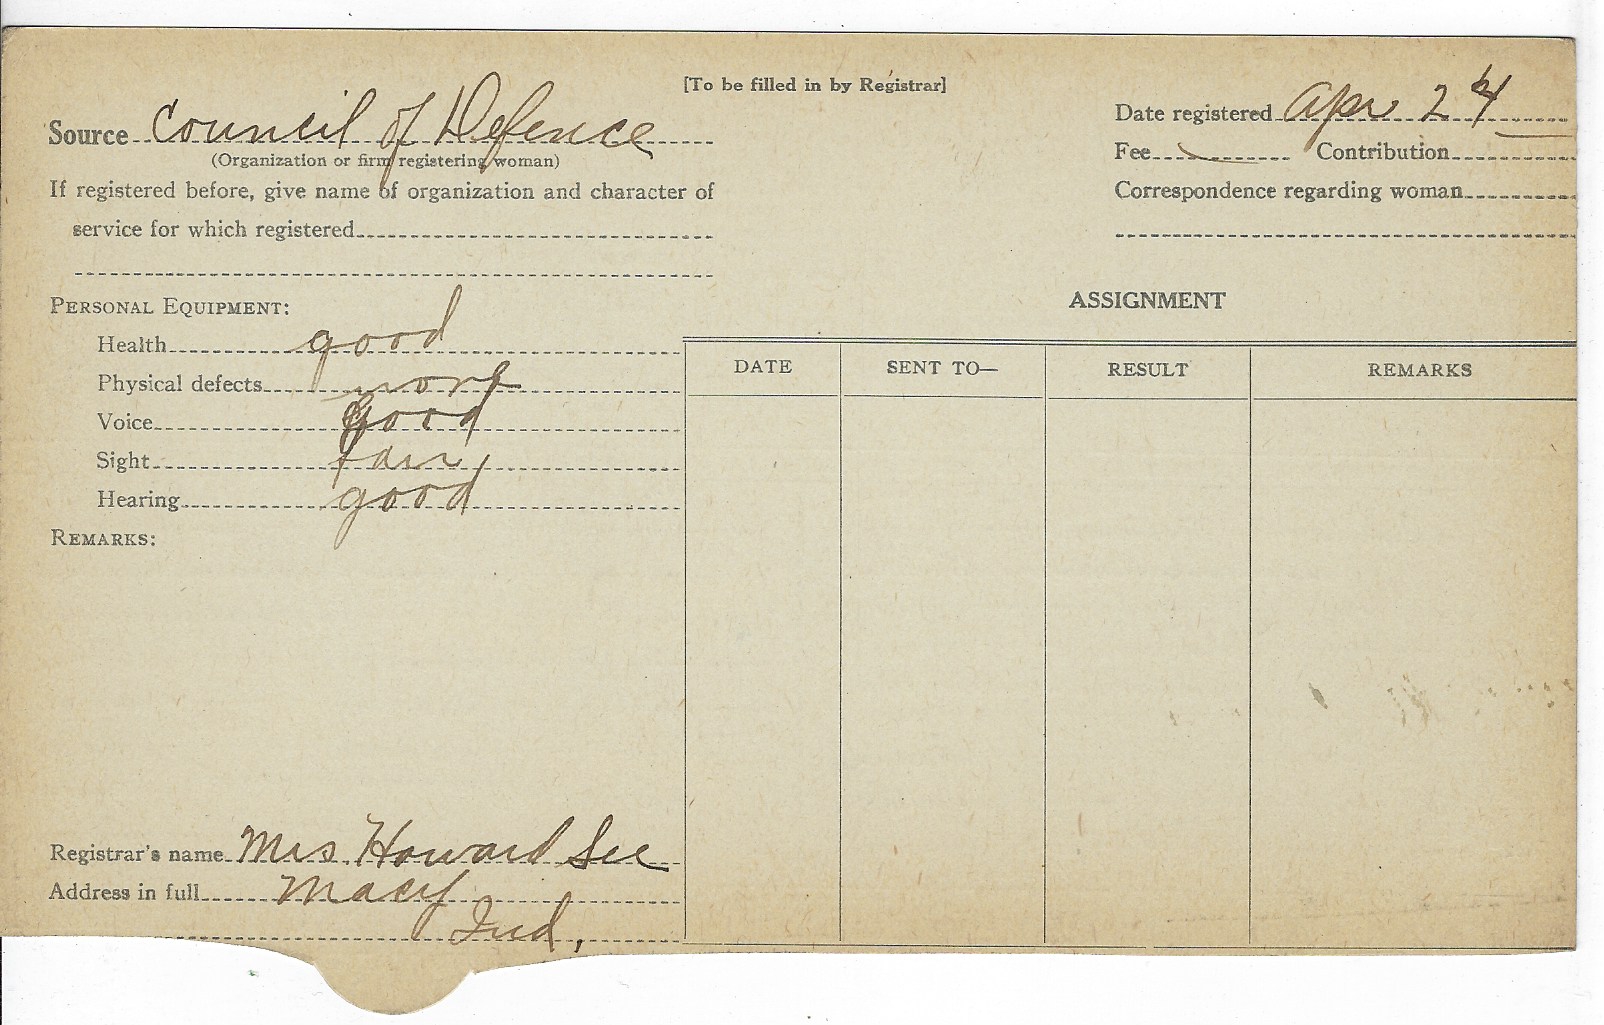 [To be filled in by Registrar]
Source Council of Defence
(Organization or firm registering woman)
If registered before, give name of organization and character of
service for which registered
Date registered Apr 24
Fee Contribution
Correspondence regarding woman
PERSONAL EQUIPMENT:
Health good
Physical defects none
Voice Good
Sight fair
Hearing good
REMARKS:
ASSIGNMENT
DATE SENT TO— RESULT REMARKS
Registrar's name Mrs Howard See
Address in full Macy
Ind.